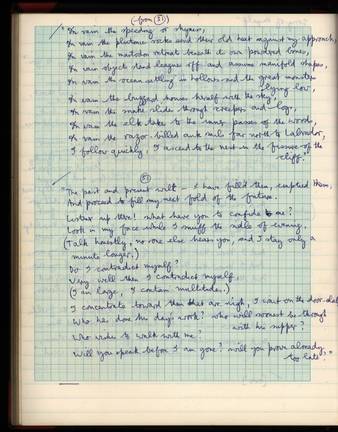 (from (31)
"In vain the speeding or shyness,
In vain the plutonic rocks send their old heat against my approach,
In vain the mastodon retreats beneath its own powdered bones,
In vain objects stand leagues off and assume manifold shapes,
In vain the ocean settling in hollows and the great monsters
lying low,
In vain the buzzard houses herself with the sky,
In vain the snake slides through creepers and logs,
In vain the elk takes to the inner passes of the woods,
In vain the razor-billed auk sails far north to Labrador,
I follow quickly, I ascend to the nest in the fissure of the
cliff."
(51)
"The past and present wilt – I have fill'd them, emptied them,
And proceed to fill my next fold of the future.
Listener up there! what have you to confide to me?
Look in my face while I snuff the sidle of evening,
(Talk honestly, no one else hears you, and I stay only a
minute longer.)
Do I contradict myself?
Very well then I contradict myself,
(I am large, I contain multitudes.)
I concentrate toward them that are nigh, I wait on the door-slab
Who has done his day's work? who will soonest be through
with his supper?
Who wishes to walk with me?
Will you speak before I am gone? will you prove already
too late."